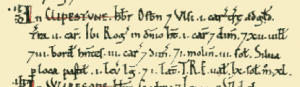 In CLIPESTUNE. hb͞r Osƀn 7 Vlsi .i. car͛ træ ad gl͞d.
Tra .ii. car͛. Ibi Rog͛ in dn͞io hť .i. car͛ 7 dim͛. 7 xii. uiƚƚ
7 iii. borđ hn͞tes .iii. car͛ 7 dim͛. 7 i. molin͛. iii. soƚ. Silua
p loca past͛ .i. leu͛ lg͛ 7 .i. lať. T.R.E. uaƚ lx. soƚ. m͛ xl.